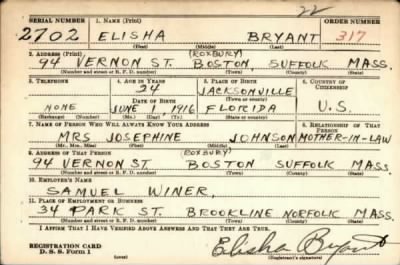 22
SERIAL NUMBER 1. NAME (Print) ORDER NUMBER
2702 ELISHA BRYANT 317
(First) (Middle) (Last)
2. ADDRESS (Print) (ROXBURY)
94 VERNON ST. BOSTON, SUFFOLK MASS.
(Number and street or R. F. D. number) (Town) (County) (State)
3. TELEPHONE 4. AGE IN YEARS 5. PLACE OF BIRTH 6. COUNTRY OF CITIZENSHIP
24 JACKSONVILLE
(Town or county)
DATE OF BIRTH
NONE JUNE 1 1916 FLORIDA U.S.
(Exchange) (Number) (Mo.) (Day) (Yr.) (State or country)
7. NAME OF PERSON WHO WILL ALWAYS KNOW YOUR ADDRESS 8. RELATIONSHIP OF THAT PERSON
MRS JOSEPHINE JOHNSON MOTHER-IN-LAW
(Mr., Mrs., Miss) (First) (Middle) (Last)
9. ADDRESS OF THAT PERSON (ROXBURY)
94 VERNON ST. BOSTON SUFFOLK MASS.
(Number and street or R. F. D. number) (Town) (County) (State)
10. EMPLOYER'S NAME
SAMUEL WINER,
11. PLACE OF EMPLOYMENT OR BUSINESS
34 PARK ST. BROOKLINE NORFOLK MASS.
(Number and street or R. F. D. number) (Town) (County) (State)
I AFFIRM THAT I HAVE VERIFIED ABOVE ANSWERS AND THAT THEY ARE TRUE.
REGISTRATION CARD
D. S. S. Form 1
Elisha Bryant
(Registrant's signature)